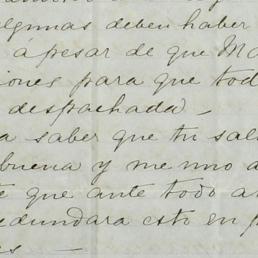 algunas deben haber
a pesar de que Ma
iones para que tod
despachada —
a saber que tu sal
buena y me uno a
e que ante todo a
edundara esto en
es —